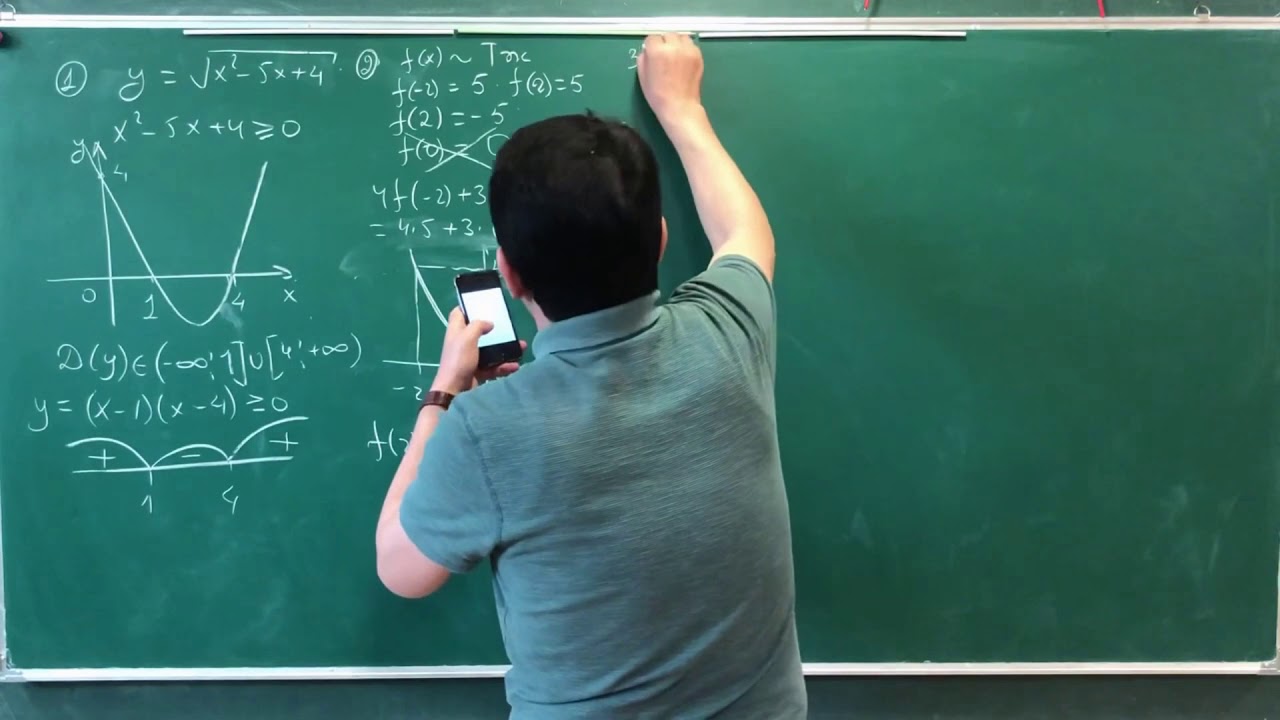 ① y = √x²-5x+4
x²-5x+4 ≥ 0
y
4
0 1 4 x
D(y)∈(-∞;1]∪[4;+∞)
y = (x-1)(x-4) ≥ 0
+ - +
1 4
② f(x) ~
f(-2) = 5 · f(2)=5
f(2) = -5
f(0) = 0
4f(-2)+3
= 4·5+3·
-2
f(